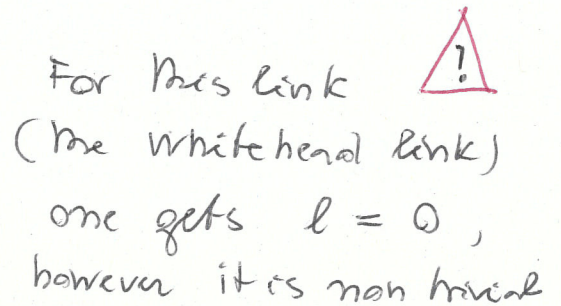 For this link
!
(the Whitehead link)
one gets l = 0,
however it is non trivial